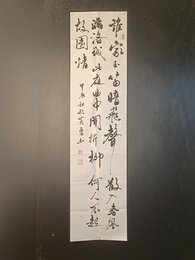 誰家玉笛暗飛聲散入春風
滿洛城此夜曲中聞折柳何人不起
故園情
甲辰初秋